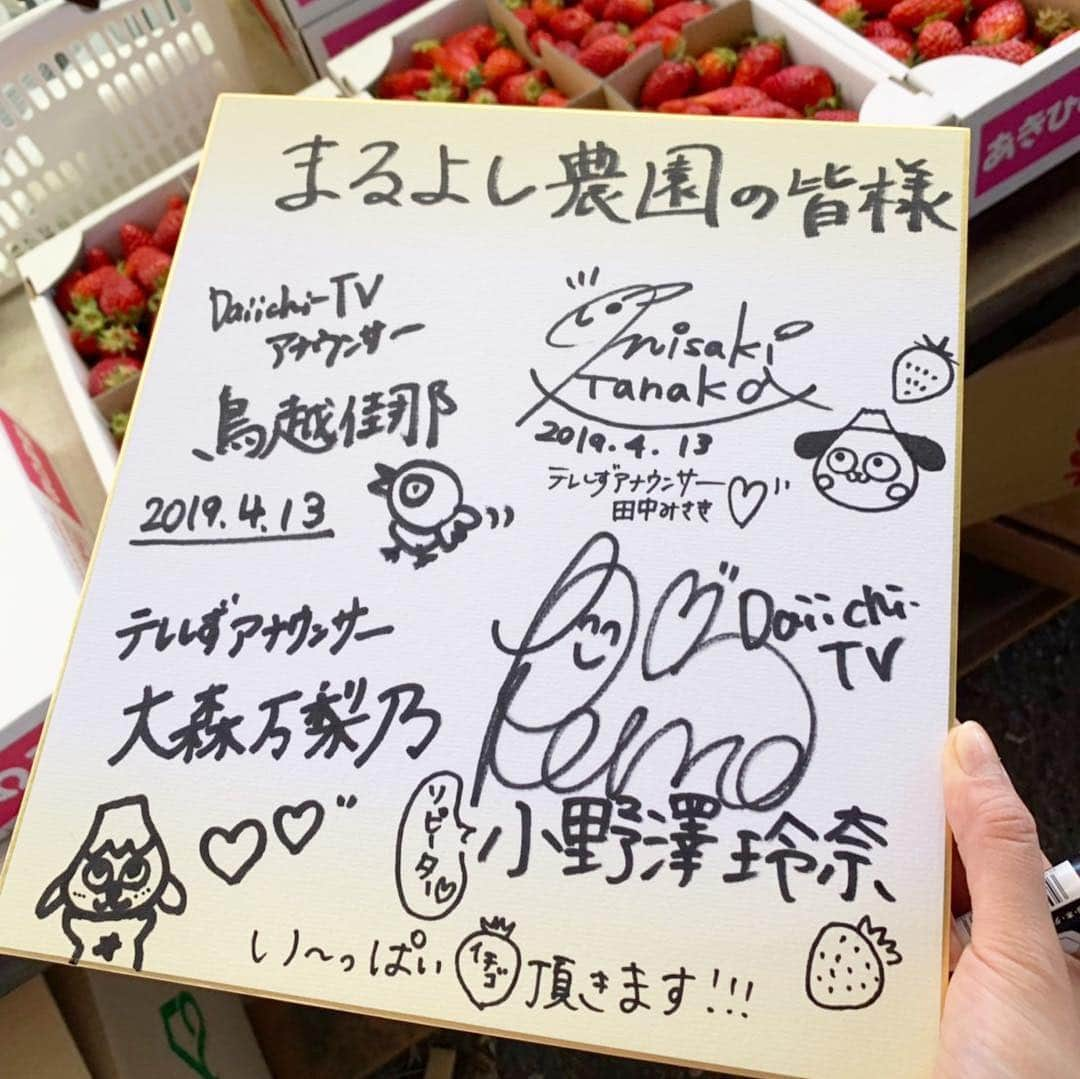 まるよし農園の皆様
Daiichi-TV
アナウンサー
鳥越佳那
2019.4.13
misaki
Tanaka
2019.4.13
テレしずアナウンサー
田中みさき
テレしずアナウンサー
大森万梨乃
Daiichi-
TV
Reina
小野澤玲奈
リピーター♡
い〜っぱい イチゴ 頂きます!!!
あきひ